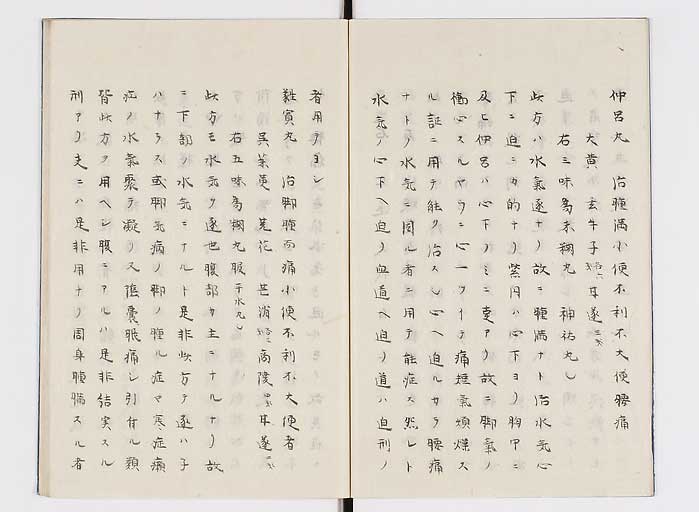 仲呂丸 治腫満小便不利不大便腰痛
大黄 玄牛子 甘遂
右三味為末糊丸 神祐丸
此方ハ水氣逐ナリ故ニ腫満ナト治水気心
下ニ迫ニカ的ナリ紫円ハ心下ヨリ胸甲ニ
及ヒ仲呂ハ心下ノミニ専ナリ故ニ脚氣ノ
衝心スルヤウニ心一ツ テ痛短氣煩燥ス
ル証ニ用テ能ク治ス 心ヘ迫ルカラ腰痛
ナトノ水気ニ関ル者ニ用テ能症ス然レト
水気ノ心下ヘ迫リ血道ヘ迫リ道ハ迫刑ノ
者用テヨシ
難賓丸 治脚腫而痛小便不利不大便者
呉茱萸 芫花 芒消 商陸 甘遂
右五味為糊丸服
此方モ水気ヲ逐也腹部カ主ニナルナリ故
ニ下部ノ水気ニナルト是非此方テ逐ハ子
ハナラス或脚気病ノ脚ノ腫ル症マ寒症癪
疝ノ水氣聚テ凝リス陰嚢眼痛シ引付ル類
皆此方ヲ用ヘシ腹ニアルハ是非結実スル
刑アリ夫ニハ是非用ナリ周身腫満スル者